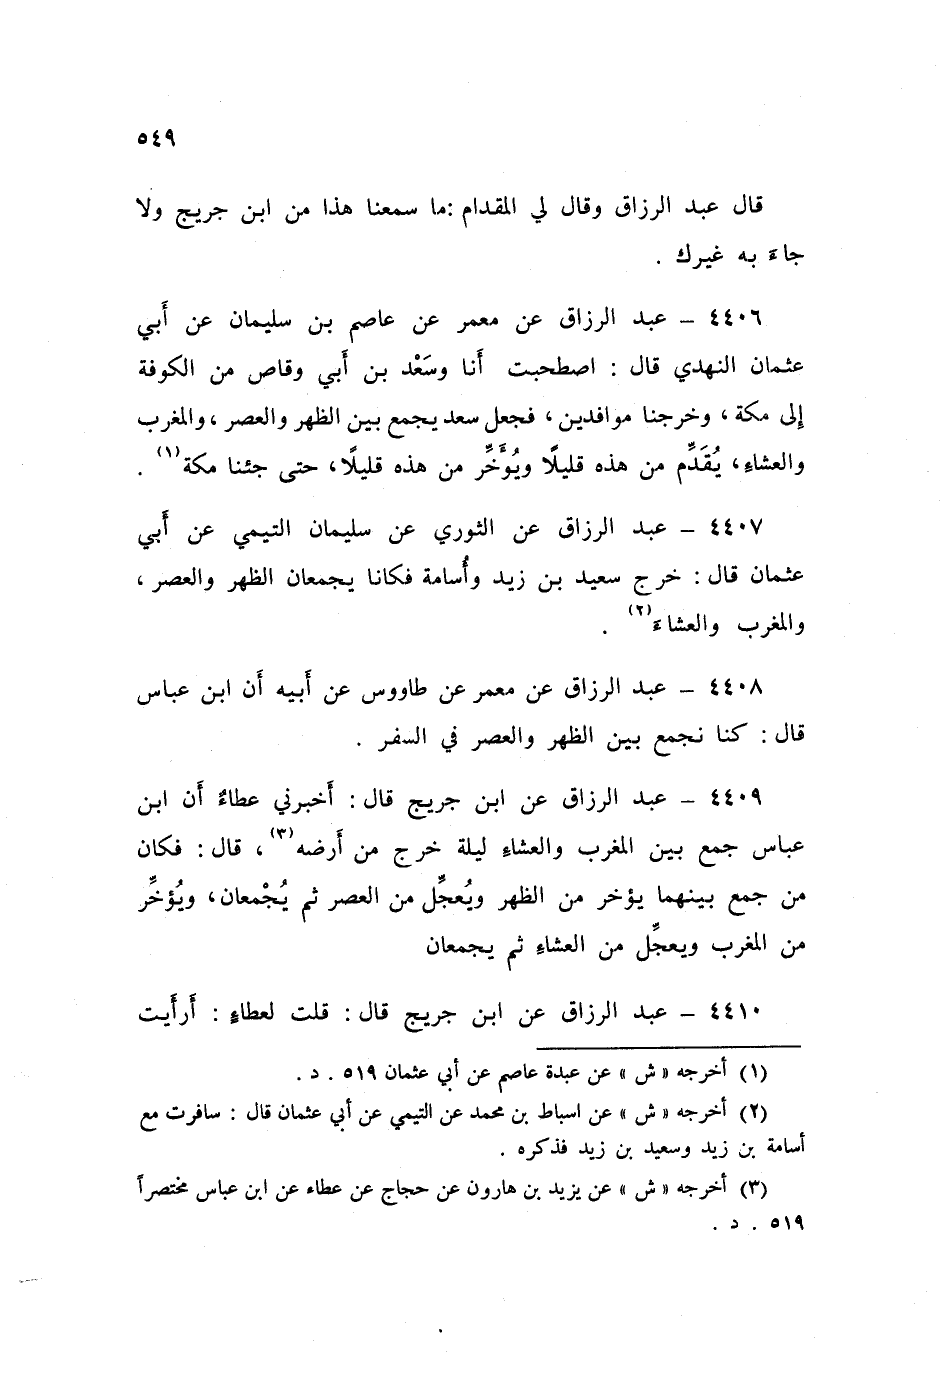 ٥٤٩
قال عبد الرزاق وقال لي المقدام :ما سمعنا هذا من ابن جريج ولا
جاءَ به غيرك .
٤٤٠٦ – عبد الرزاق عن معمر عن عاصم بن سليمان عن أَبي
عثمان النهدي قال : اصطحبت أَنا وسَعْد بن أَبي وقاص من الكوفة
إلى مكة ، وخرجنا موافدين ، فجعل سعد يجمع بين الظهر والعصر ، والمغرب
والعشاءِ، يُقَدِّم من هذه قليلًا ويُؤَخِّر من هذه قليلًا، حتى جئنا مكة (١) .
٤٤٠٧ – عبد الرزاق عن الثوري عن سليمان التيمي عن أَبي
عثمان قال : خرج سعيد بن زيد وأُسامة فكانا يجمعان الظهر والعصر ،
والمغرب والعشاءَ (٢) .
٤٤٠٨ – عبد الرزاق عن معمر عن طاووس عن أَبيه أَن ابن عباس
قال : كنا نجمع بين الظهر والعصر في السفر .
٤٤٠٩ – عبد الرزاق عن ابن جريج قال : أَخبرني عطاءٌ أَن ابن
عباس جمع بين المغرب والعشاءِ ليلة خرج من أَرضه (٣) ، قال : فكان
من جمع بينهما يؤخر من الظهر ويُعجِّل من العصر ثم يُجْمعان، ويُؤخِّر
من المغرب ويعجِّل من العشاءِ ثم يجمعان
٤٤١٠ – عبد الرزاق عن ابن جريج قال : قلت لعطاءٍ : أَرأَيت
(١) أخرجه « ش » عن عبدة عاصم عن أبي عثمان ٥١٩ . د .
(٢) أخرجه « ش » عن اسباط بن محمد عن التيمي عن أبي عثمان قال : سافرت مع
أسامة بن زيد وسعيد بن زيد فذكره .
(٣) أخرجه « ش » عن يزيد بن هارون عن حجاج عن عطاء عن ابن عباس مختصراً
٥١٩ . د .